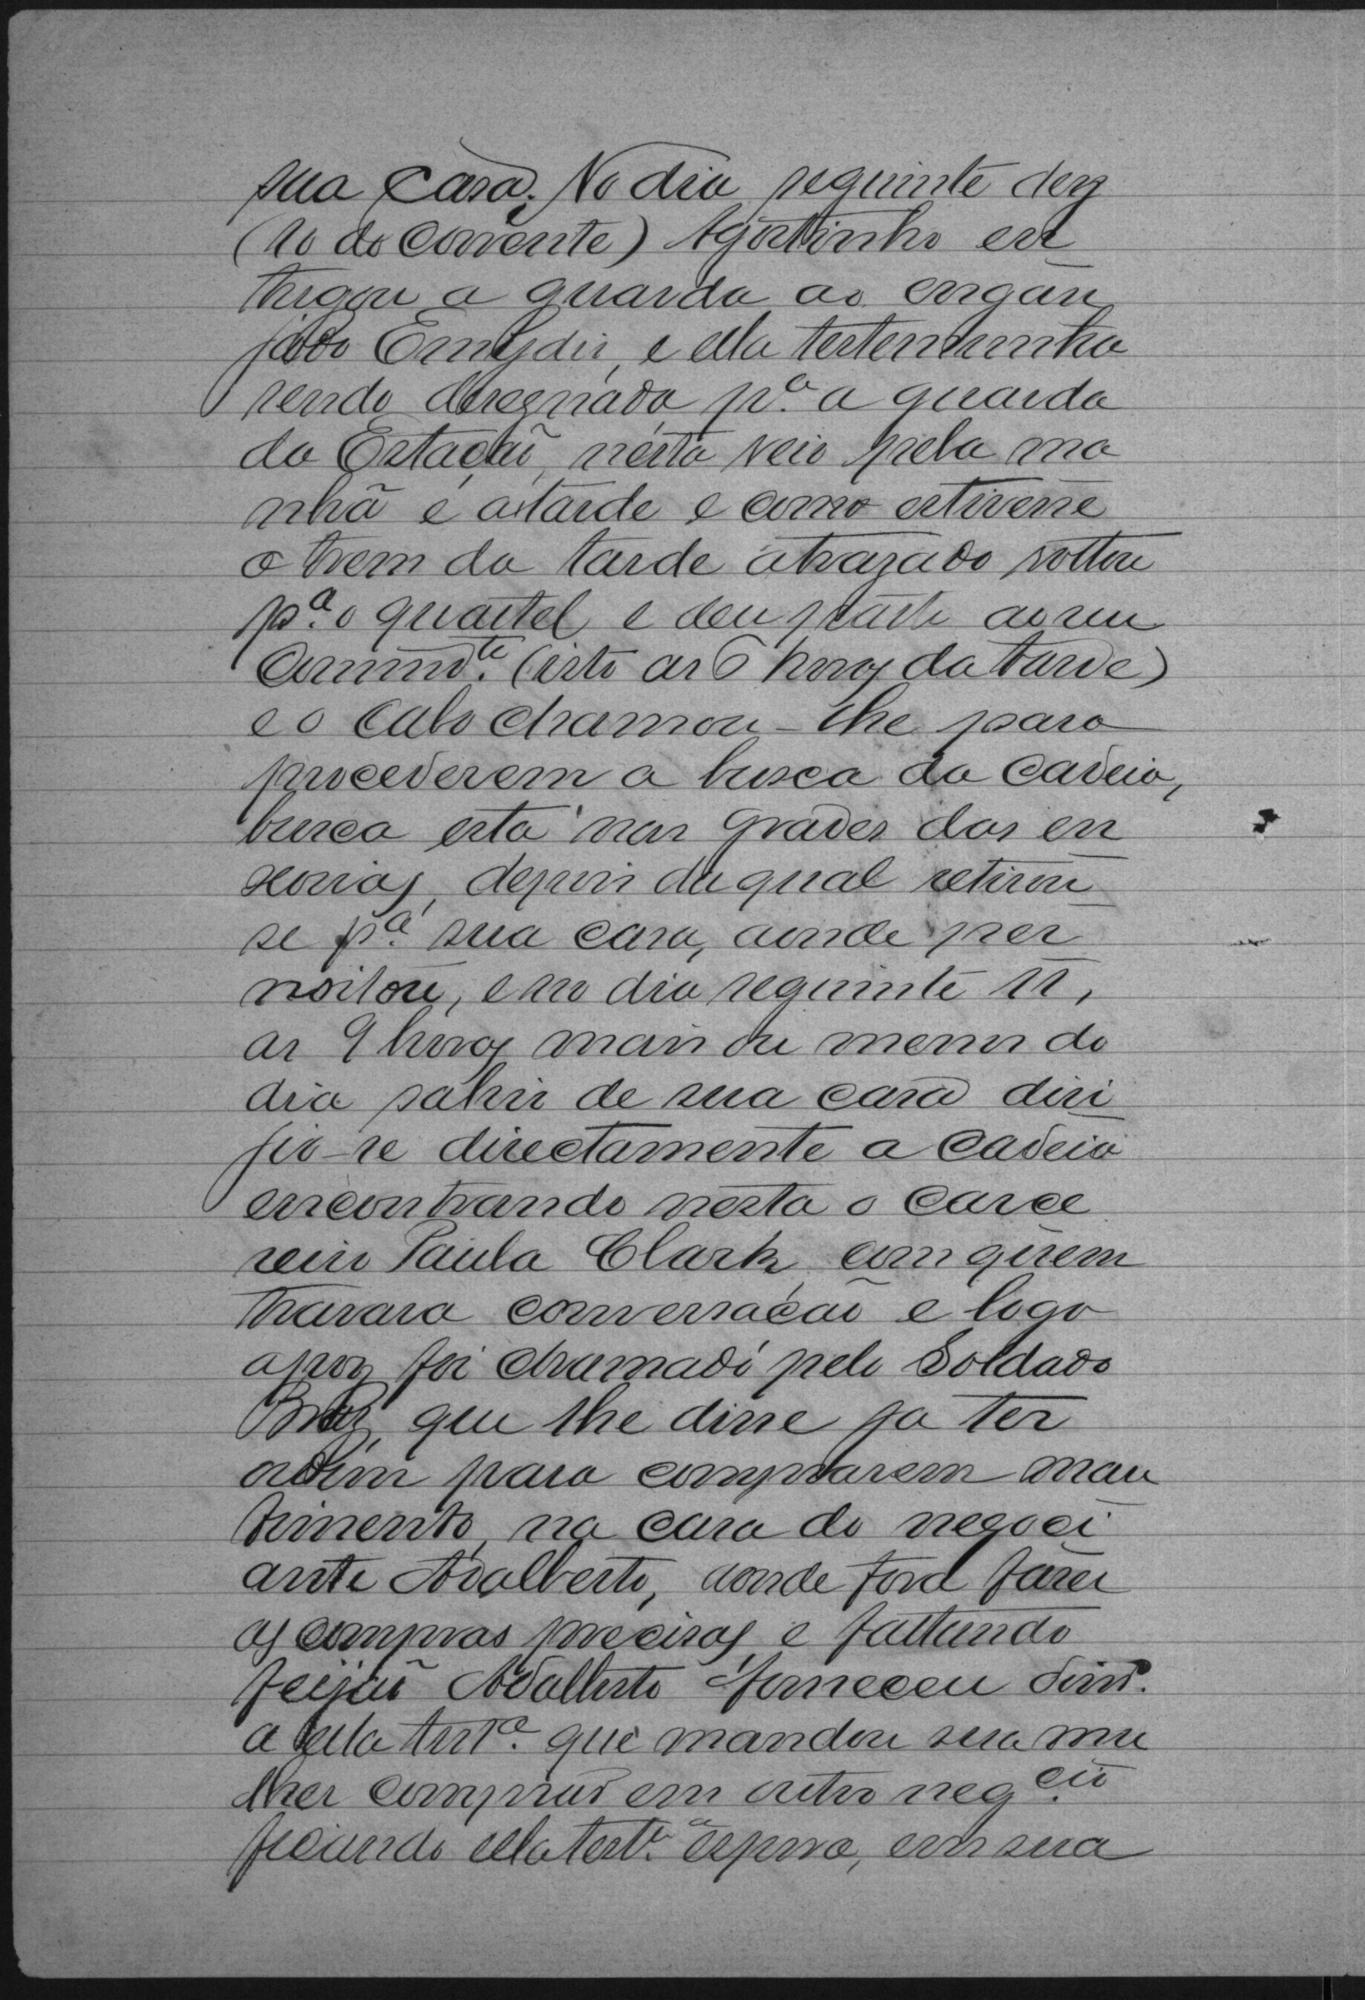 sua casa. No dia seguinte dez
(10 do corrente) Agostinho en
tregou a guarda ao engan
jado Emydio, e ella testemunha
sendo designada pª a guarda
da Estação, nesta veio pela ma
nhã e a tarde e como estivesse
o trem da tarde atrazado voltou
pª o quartel e deu parte ao seu
Commdte (isto as 6 horas da tarde)
e o cabo chamou-lhe para
procederem a busca da cadeia,
busca esta nas grades das en
xovias, depois da qual retirou
se pª sua casa, aonde per
noitou, e no dia seguinte 11,
as 9 horas mais ou menos do
dia sahir de sua casa diri
jio-se directamente a cadeia
encontrando nesta o carce
reiro Paula Clark, com quem
travara conversação e logo
apoz foi chamado pelo Soldado
Braz, que lhe disse ja ter
ordem para comprarem man
timento, na casa do negoci
ante Adalberto, aonde fora fazer
as compras precisas, e faltando
feijão Adalberto forneceu dinrº
a ella testª que mandou sua mu
lher comprar em outro negcio
ficando ella testª espera, em sua